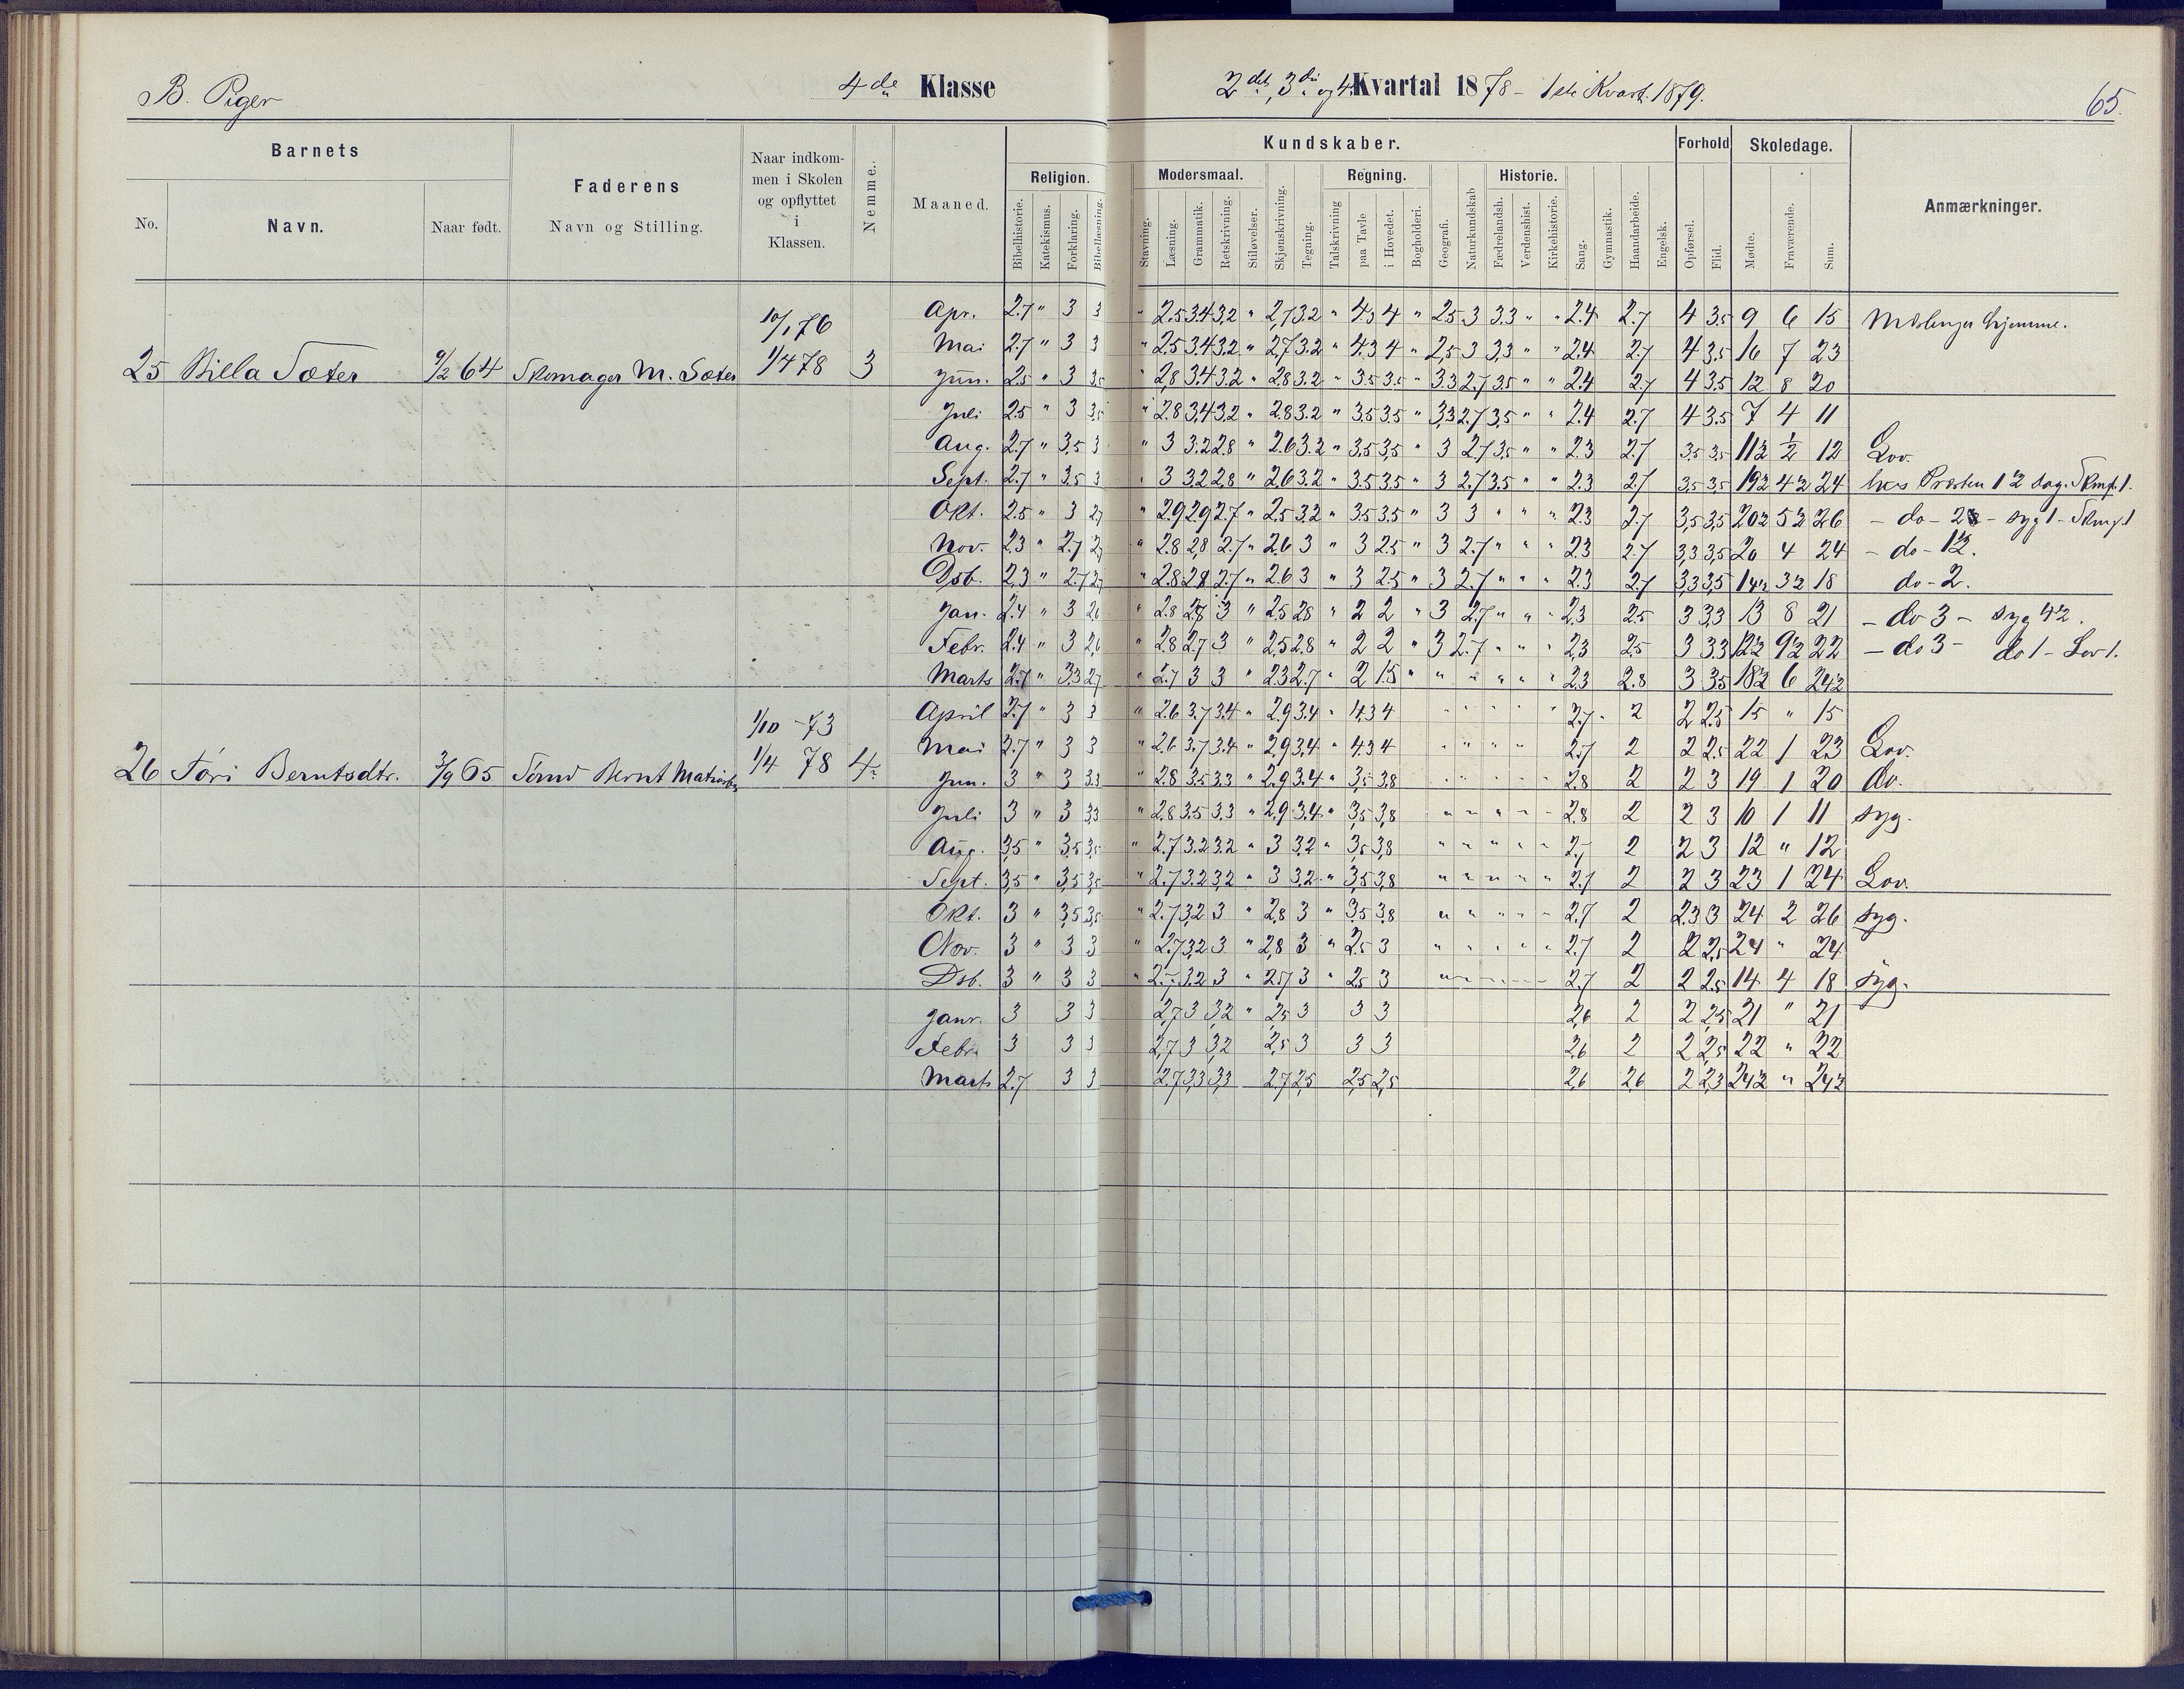 B. Piger
4de Klasse
2det, 3die og 4 Kvartal 1878 - 1ste Kvart. 1879.
65.
Barnets
Faderens
Naar indkom-
men i Skolen
og opflyttet
i
Klassen.
Nemme.
Maaned.
Kundskaber.
Forhold
Skoledage.
Anmærkninger.
No.
Navn.
Naar født.
Navn og Stilling.
Religion.
Modersmaal.
Regning.
Historie.
Bibelhistorie.
Katekismus.
Forklaring.
Bibellæsning.
Stavning.
Læsning.
Grammatik.
Retskrivning.
Stiløvelser.
Skjønskrivning.
Tegning.
Talskrivning
paa Tavle
i Hovedet.
Bogholderi.
Geografi.
Naturkundskab
Fædrelandsh.
Verdenshist.
Kirkehistorie.
Sang.
Gymnastik.
Haandarbeide.
Engelsk.
Opførsel.
Flid.
Mødte.
Fraværende.
Sum.
25 Billa Sæter 9/2 64 Skomager M. Sæter 10/1 76 1/4 78 3
Apr. 2.7 " 3 3 " 2.5 3.4 3.2 " 2.7 3.2 " 4.3 4 " 2.5 3 3.3 " " 2.4 2.7 4 3.5 9 6 15 Mæslinger hjemme.
Mai 2.7 " 3 3 " 2.5 3.4 3.2 " 2.7 3.2 " 4.3 4 " 2.5 3 3.3 " " 2.4 2.7 4 3.5 16 7 23
Jun. 2.5 " 3 3.5 " 2.8 3.4 3.2 " 2.8 3.2 " 3.5 3.5 " 3.3 2.7 3.5 " " 2.4 2.7 4 3.5 12 8 20
Juli 2.5 " 3 3.5 " 2.8 3.4 3.2 " 2.8 3.2 " 3.5 3.5 " 3.3 2.7 3.5 " " 2.4 2.7 4 3.5 7 4 11
Aug. 2.7 " 3.5 3 " 3 3.2 2.8 " 2.6 3.2 " 3.5 3.5 " 3 2.7 3.5 " " 2.3 2.7 3.5 3.5 11½ ½ 12 Lov.
Sept. 2.7 " 3.5 3 " 3 3.2 2.8 " 2.6 3.2 " 3.5 3.5 " 3 2.7 3.5 " " 2.3 2.7 3.5 3.5 19½ 4½ 24 hos Præsten 1½ dag.
Okt. 2.5 " 3 2.7 " 2.9 2.9 2.7 " 2.5 3.2 " 3.5 3.5 " 3 3 " " " 2.3 2.7 3.5 3.5 20½ 5½ 26 - do - syg 1 -
Nov. 2.3 " 2.7 2.7 " 2.8 2.8 2.7 " 2.6 3 " 3 2.5 " 3 2.7 " " " 2.3 2.7 3.3 3.5 20 4 24 - do - 1½.
Dsb. 2.3 " 2.7 2.7 " 2.8 2.8 2.7 " 2.6 3 " 3 2.5 " 3 2.7 " " " 2.3 2.7 3.3 3.5 14½ 3½ 18 do - 2.
Jan. 2.4 " 3 2.6 " 2.8 2.8 3 " 2.5 2.8 " 2 2 " 3 2.7 " " " 2.3 2.5 3 3.3 13 8 21 - do 3 - syg 4½.
Febr. 2.4 " 3 2.6 " 2.8 2.7 3 " 2.5 2.8 " 2 2 " 3 2.7 " " " 2.3 2.5 3 3.3 12½ 9½ 22 - do 3 - do 1 - Lov 1.
Marts 2.7 " 3.3 2.7 " 2.7 3 3 " 2.3 2.7 " 2 1.5 " " " " " " 2.3 2.8 3 3.5 18½ 6 24½
26 Tori Berntsdtr. 3/9 65 Sømd Bernt 1/10 - 73 1/4 78 4
April 2.7 " 3 3 " 2.6 3.7 3.4 " 2.9 3.4 " 4.3 4 " " " " " 2.7 2 2 2.5 15 " 15
Mai 2.7 " 3 3 " 2.6 3.7 3.4 " 2.9 3.4 " 4.3 4 " " " " 2.7 2 2 2.5 22 1 23 Lov.
Jun. 3 " 3 3.3 " 2.8 3.5 3.3 " 2.9 3.4 " 3.5 3.8 " " " " " 2.8 2 2 3 19 1 20 do.
Juli 3 " 3 3.3 " 2.8 3.5 3.3 " 2.9 3.4 " 3.5 3.8 " " " " " 2.8 2 2 3 10 1 11 syg.
Aug. 3.5 " 3.5 3.5 " 2.7 3.2 3.2 " 3 3.2 " 3.5 3.8 " " " " " 2.7 2 2 3 12 " 12
Sept. 3.5 " 3.5 3.5 " 2.7 3.2 3.2 " 3 3.2 " 3.5 3.8 " " " " " 2.7 2 2 3 23 1 24 Lov.
Okt. 3 " 3.5 3.5 " 2.7 3.2 3 " 2.8 3 " 3.5 3.8 " " " " " 2.7 2 2.3 3 24 2 26 syg.
Nov. 3 " 3 3 " 2.7 3.2 3 " 2.8 3 " 2.5 3 " " " " " 2.7 2 2 2.5 24 " 24
Dsb. 3 " 3 3 " 2.7 3.2 3 " 2.7 3 " 2.5 3 " " " " " 2.7 2 2 2.5 14 4 18 syg.
Janr. 3 3 3 2.7 3 3.2 " 2.5 3 3 3 2.6 2 2 2.5 21 " 21
Febr. 3 3 3 2.7 3 3.2 2.5 3 3 3 2.6 2 2 2.5 22 " 22
Marts 2.7 3 3 2.7 3.3 3.3 2.7 2.5 2.5 2.5 2.6 2.6 2 2.3 24½ " 24½